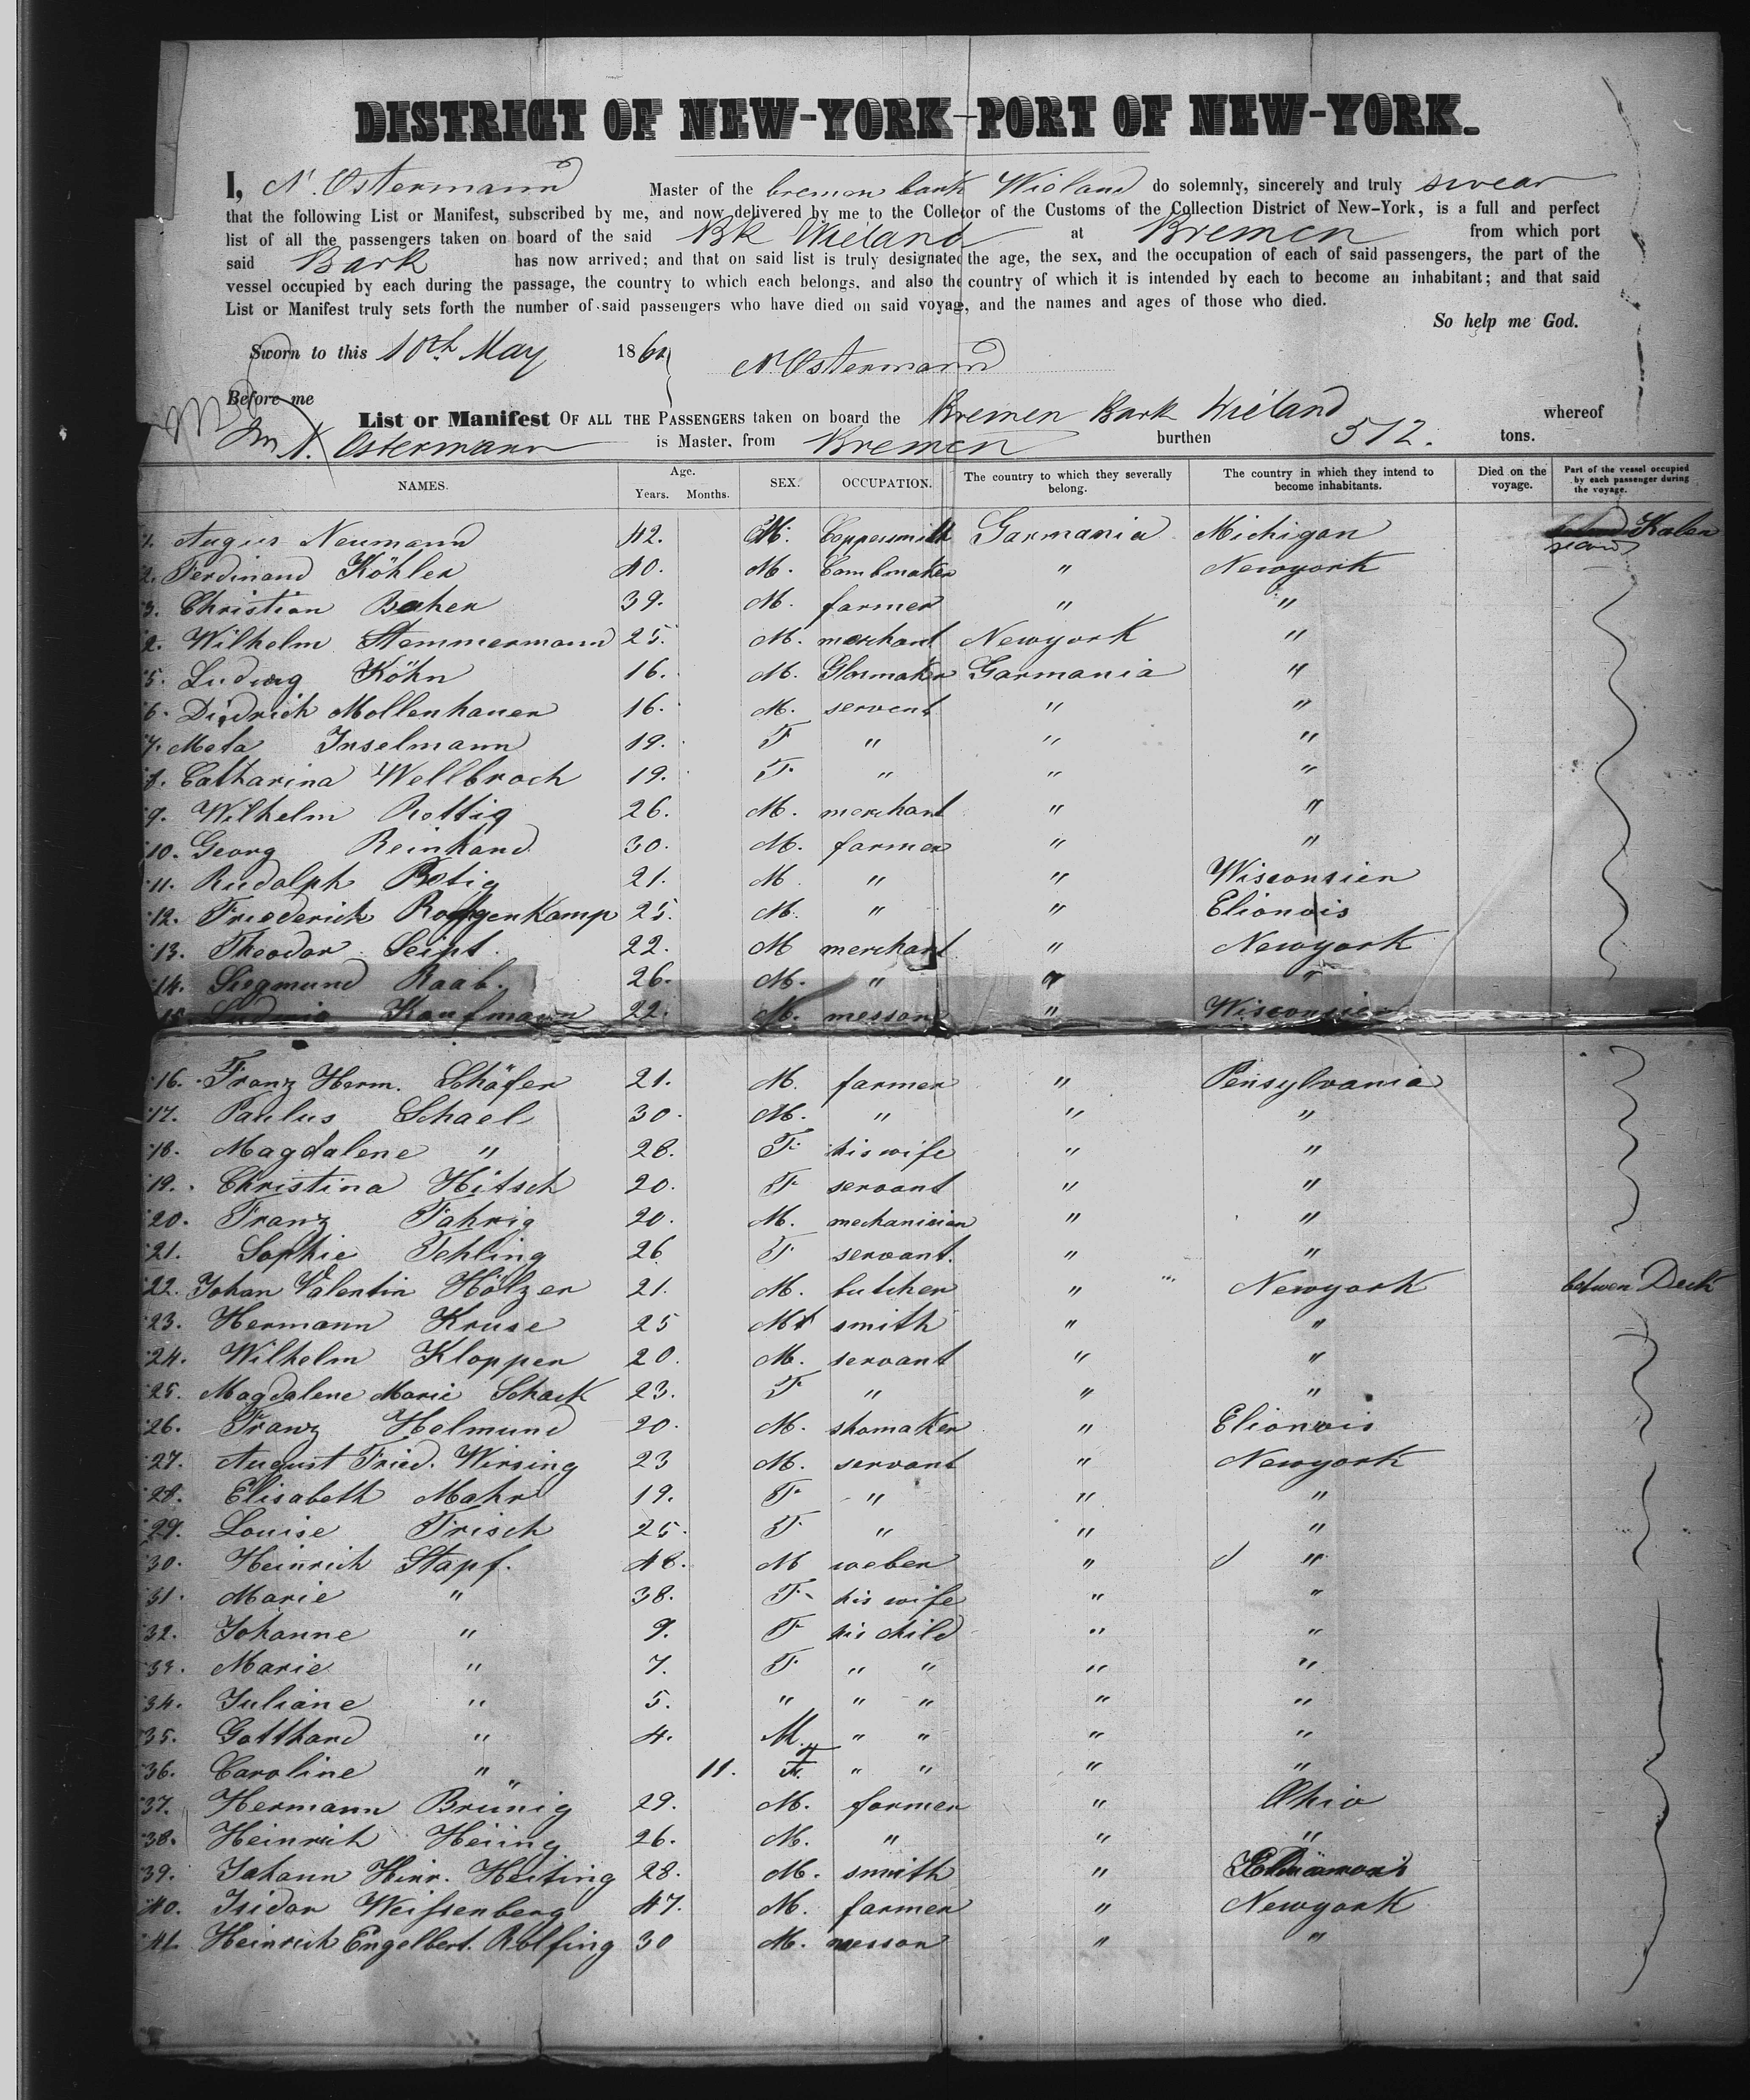 DISTRICT OF NEW-YORK-PORT OF NEW-YORK.
I, N. Ostermann Master of the bremen bark Wieland do solemnly, sincerely and truly swear
that the following List or Manifest, subscribed by me, and now delivered by me to the Collector of the Customs of the Collection District of New-York, is a full and perfect
list of all the passengers taken on board of the said Bk Wieland at Bremen from which port
said Bark has now arrived; and that on said list is truly designated the age, the sex, and the occupation of each of said passengers, the part of the
vessel occupied by each during the passage, the country to which each belongs, and also the country of which it is intended by each to become an inhabitant; and that said
List or Manifest truly sets forth the number of said passengers who have died on said voyage, and the names and ages of those who died.
So help me God.
Sworn to this 10th May 186 N. Ostermann
Before me
List or Manifest OF ALL THE PASSENGERS taken on board the Bremen Bark Wieland whereof
N. Ostermann is Master, from Bremen burthen 512. tons.
NAMES. Age. Years. Months. SEX. OCCUPATION. The country to which they severally belong. The country in which they intend to become inhabitants. Died on the voyage. Part of the vessel occupied by each passenger during the voyage.
1. Augus Neumann 42. M. Coppersmith Garmania Michigan second
2. Ferdinand Köhler 40. M. Combmaker " Newyork
3. Christian Baher 39. M. farmer " "
4. Wilhelm Stemmermann 25. M. merchant Newyork "
5. Ludwig Köhn 16. M. Garmania "
6. Diedrich Mollenhauer 16. M. servent " "
7. Meta Inselmann 19. F " " "
8. Catharina Wellbroch 19. F. " " "
9. Wilhelm Rottig 26. M. merchant " "
10. Georg Reinhard 30. M. farmer " "
11. Rudolph Rotig 21. M. " " Wisconsien
12. Friederich Roggenkamp 25. M. " " Elionois
13. Theodor Seipt. 22. M merchant " Newyork
14. Siegmund Raab. 26. M. " " "
15. Ludwig Kaufmann 22. M. messon " Wisconsien
16. Franz Herm. Schäfer 21. M. farmer " Pensylvania
17. Paulus Schael 30. M. " " "
18. Magdalene " 28. F. his wife " "
19. Christina Hitsch 20. F servant " "
20. Franz Fahrig 20. M. mechanician " "
21. Sophie Fehling 26 F servant. " "
22. Johan Valentin Hölzer 21. M. butcher " Newyork betwen Deck
23. Hermann Kruse 25 M smith " "
24. Wilhelm Klopper 20. M. servant " "
25. Magdalene Marie Schack 23. F " " "
26. Franz Helmund 20. M. shomaker " Elionois
27. August Fried. Wirsing 23 M. servant " Newyork
28. Elisabeth Mahr 19. F " " "
29. Louise Frisch 25. F " " "
30. Heinrich Stapf. 48. M weber " "
31. Marie " 38. F. his wife " "
32. Johanne " 9. F his child " "
33. Marie " 7. F " " " "
34. Juliane " 5. " " " " "
35. Gotthard " 4. M. " " " "
36. Caroline " 11. F. " " " "
37. Hermann Brünig 29. M. farmer " Ohio
38. Heinrich Heiing 26. M. " " "
39. Johann Hinr. Heiting 28. M. smith "
40. Isidor Weissenberg 47. M. farmer " Newyork
41. Heinrich Engelbert. Rolfing 30 M. messon " "